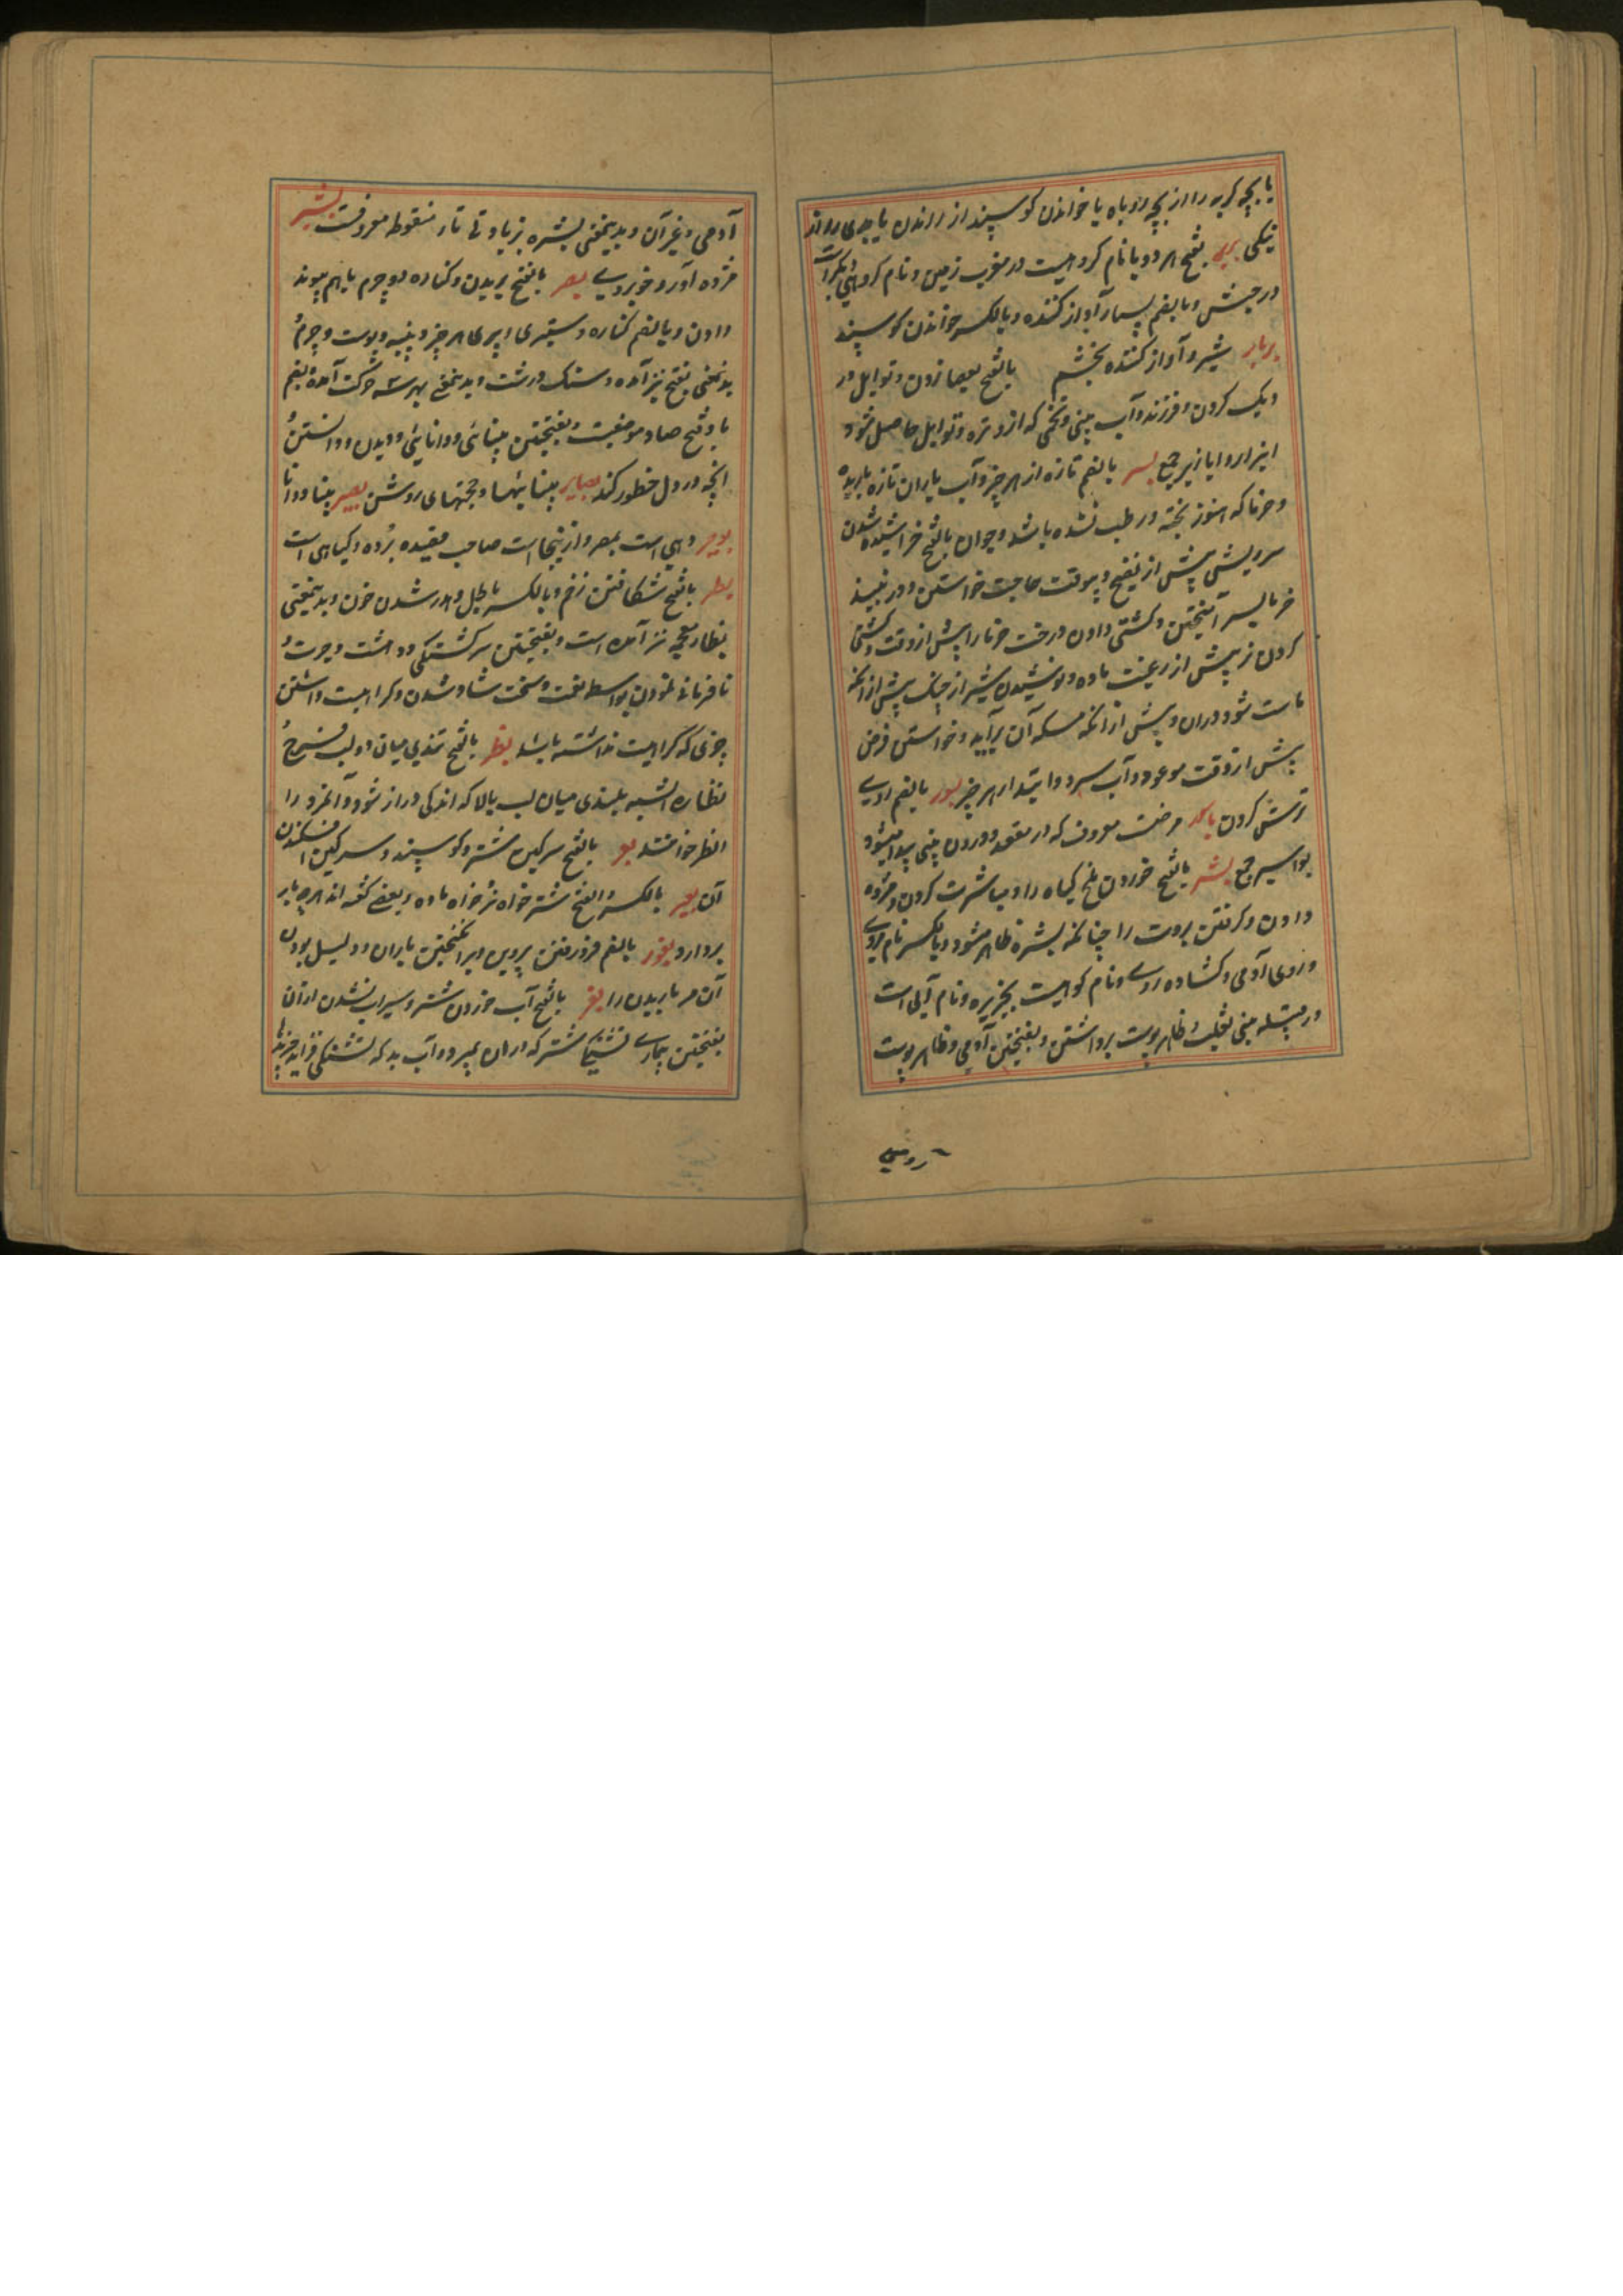 یا بچه گربه را از بچه روباه یا خواندن گوسپند از راندن یا بدی را از
نیکی بربر بفتح هر دو با نام گروهیست در مغرب زمین و نام گروهی دیگرست
در حبش و بالضم بسیار آواز کننده و بالکسر خواندن گوسپند
بربار شیر و آواز کننده بخشم بالفتح بعصا زدن و توابل در
دیک کردن و فرزند و آب بینی و تخمی که از و تره و توابل حاصل شود
ابزار و ابازیر جمع بسر بالضم تازه از هر چیز و آب باران تازه باریده
و خرما که هنوز پخته و رطب نشده باشد و جوان بالفتح خراشیده شدن
سر ریش پیش از نضج و بیوقت حاجت خواستن و در نبیذ
خرما بسر آمیختن و کشنی دادن درخت خرما را پیش از وقت و کشنی
کردن نر پیش از رغبت ماده و نوشیدن شیر از خیک پیش از آنکه
ماست شود دران و پیش از آنکه مسکه آن برآید و خواستن قرض
پیش از وقت موعود و آب سرد و ابتدای هر چیز بسور بالضم روی
ترش کردن باسور مرضیست معروف که در مقعد و درون بینی پیدا میشود
بواسیر جمع بشر بالفتح خوردن ملخ گیاه را و مباشرت کردن و مژده
دادن و گرفتن بروت را چنانکه بشره ظاهر شود و بالکسر نام مردی
و روی آدمی و گشاده روی و نام کوهیست بجزیره و نام آبی است
در قبیله بنی تغلب و ظاهر پوست برداشتن و بفتحتین آدمی و ظاهر پوست
رومی
آدمی و غیر آن و بدینمعنی بشره بزیادتی تاء منقوطه معروفست بشیر
مژده آور و خوبروی بصر بالفتح بریدن و کناره دو چرم باهم پیوند
دادن و بالضم کناره و ستبری هر چیز و پنبه و پوست و چرم و
بدینمعنی بفتح نیز آمده و سنگ درشت و بدینمعنی بهر سه حرکت آمده بضم
با و فتح صاد موضعیست و بفتحتین بینائی و دانائی و دیدن و دانستن و
آنچه در دل خطور کند بصایر بینائیها و حجتهای روشن بصیر بینا و دانا
بوصیر دهی است بمصر و ازینجاست صاحب قصیده برده و گیاهی است
بطر بالفتح شکافتن زخم و بالکسر باطل و هدر شدن خون و بدینمعنی
بظاء معجمه نیز آمده است و بفتحتین سرگشتگی و دهشت و حیرت و
نافرمانی نمودن بواسطه نعمت و سخت شاد شدن و کراهیت داشتن
چیزی که کراهیت نداشته باشد بظر بالفتح تندی میان دو لب فرج و
بظاره البسه بلندی میان لب بالا که اندکی دراز شود و آنمرد را
ابظر خوانند بعر بالفتح سرگین شتر و گوسپند و سرگین افکندن
آن بعیر بالکسر و الفتح شتر خواه نر خواه ماده و بعضی گفته اند هرچه بار
بردارد بغور بالضم فرو رفتن پروین و برانگیختن باران و دلیل بودن
آن مر باریدن را بغر بالفتح آب خوردن شتر و سیراب نشدن از آن
بفتحتین بیماری تشنگی شتر که از ان بمیرد و آب بد که تشنگی فزاید